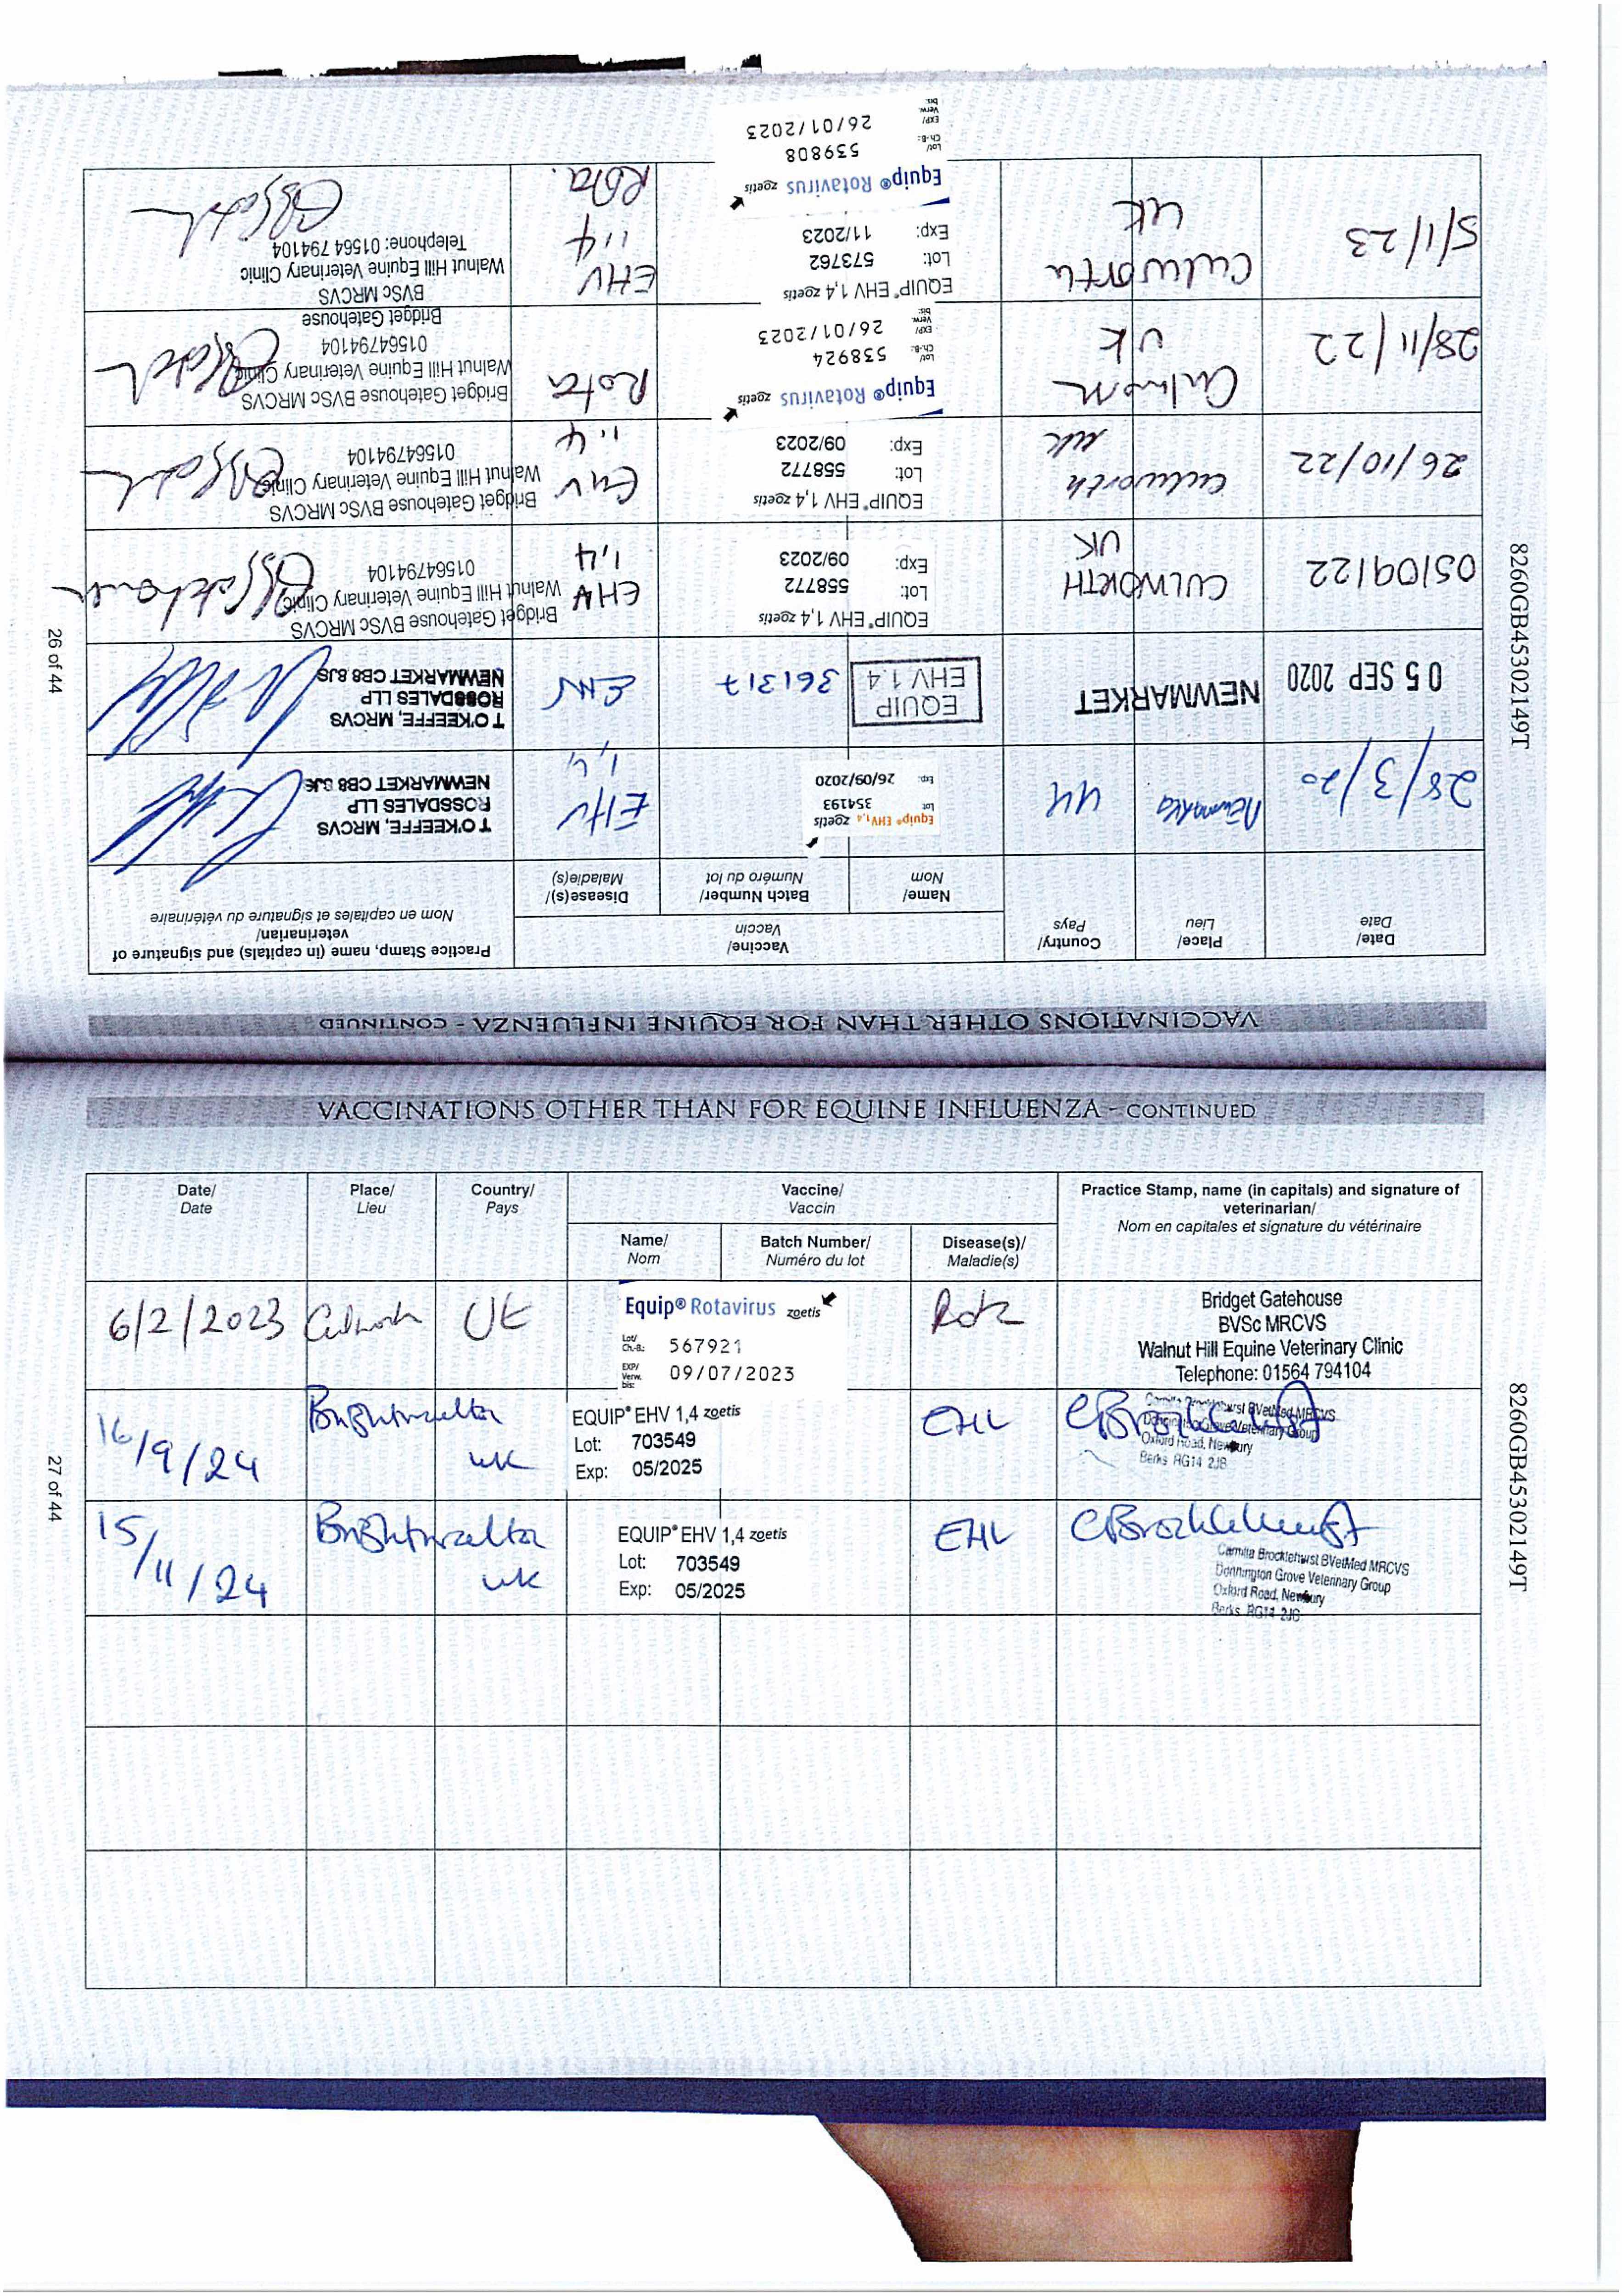 VACCINATIONS OTHER THAN FOR EQUINE INFLUENZA - CONTINUED
Date/
Date
Place/
Lieu
Country/
Pays
Vaccine/
Vaccin
Name/
Nom
Batch Number/
Numéro du lot
Disease(s)/
Maladie(s)
Practice Stamp, name (in capitals) and signature of
veterinarian/
Nom en capitales et signature du vétérinaire
28/3/20
Newmarket
UK
Equip® EHV1,4 zoetis
Lot 354193
Exp: 26/09/2020
EHV
1,4
T O'KEEFFE, MRCVS
ROSSDALES LLP
NEWMARKET CB8 8JS
05 SEP 2020
NEWMARKET
EQUIP
EHV 1.4
361317
EHV
T O'KEEFFE, MRCVS
ROSSDALES LLP
NEWMARKET CB8 8JS
05/09/22
CULWORTH
UK
EQUIP® EHV 1,4 zoetis
Lot: 558772
Exp: 09/2023
EHV
1,4
Bridget Gatehouse BVSc MRCVS
Walnut Hill Equine Veterinary Clinic
01564794104
26/10/22
Culworth
UK
EQUIP® EHV 1,4 zoetis
Lot: 558772
Exp: 09/2023
EHV
1.4
Bridget Gatehouse BVSc MRCVS
Walnut Hill Equine Veterinary Clinic
01564794104
28/11/22
UK
Equip® Rotavirus zoetis
Lot/
Ch.-B.: 538924
EXP/
Verw.
bis: 26/01/2023
Rota
Bridget Gatehouse BVSc MRCVS
Walnut Hill Equine Veterinary Clinic
01564794104
5/1/23
Culworth
UK
EQUIP® EHV 1,4 zoetis
Lot: 573762
Exp: 11/2023
Equip® Rotavirus zoetis
Lot/
Ch.-B.: 539808
EXP/
Verw.
bis: 26/01/2023
EHV
1,4
Rota.
Bridget Gatehouse
BVSc MRCVS
Walnut Hill Equine Veterinary Clinic
Telephone: 01564 794104
26 of 44
8260GB45302149T
VACCINATIONS OTHER THAN FOR EQUINE INFLUENZA - CONTINUED
Date/
Date
Place/
Lieu
Country/
Pays
Vaccine/
Vaccin
Name/
Nom
Batch Number/
Numéro du lot
Disease(s)/
Maladie(s)
Practice Stamp, name (in capitals) and signature of
veterinarian/
Nom en capitales et signature du vétérinaire
6/2/2023
Culworth
UK
Equip® Rotavirus zoetis
Lot/
Ch.-B.: 567921
EXP/
Verw.
bis: 09/07/2023
Rota
Bridget Gatehouse
BVSc MRCVS
Walnut Hill Equine Veterinary Clinic
Telephone: 01564 794104
16/9/24
Brightwalton
UK
EQUIP® EHV 1,4 zoetis
Lot: 703549
Exp: 05/2025
EHV
CBrocklehurst
Camilla Brocklehurst BVetMed MRCVS
Donnington Grove Veterinary Group
Oxford Road, Newbury
Berks RG14 2JB
15/11/24
Brightwalton
UK
EQUIP® EHV 1,4 zoetis
Lot: 703549
Exp: 05/2025
EHV
CBrocklehurst
Camilla Brocklehurst BVetMed MRCVS
Donnington Grove Veterinary Group
Oxford Road, Newbury
Berks RG14 2JB
27 of 44
8260GB45302149T